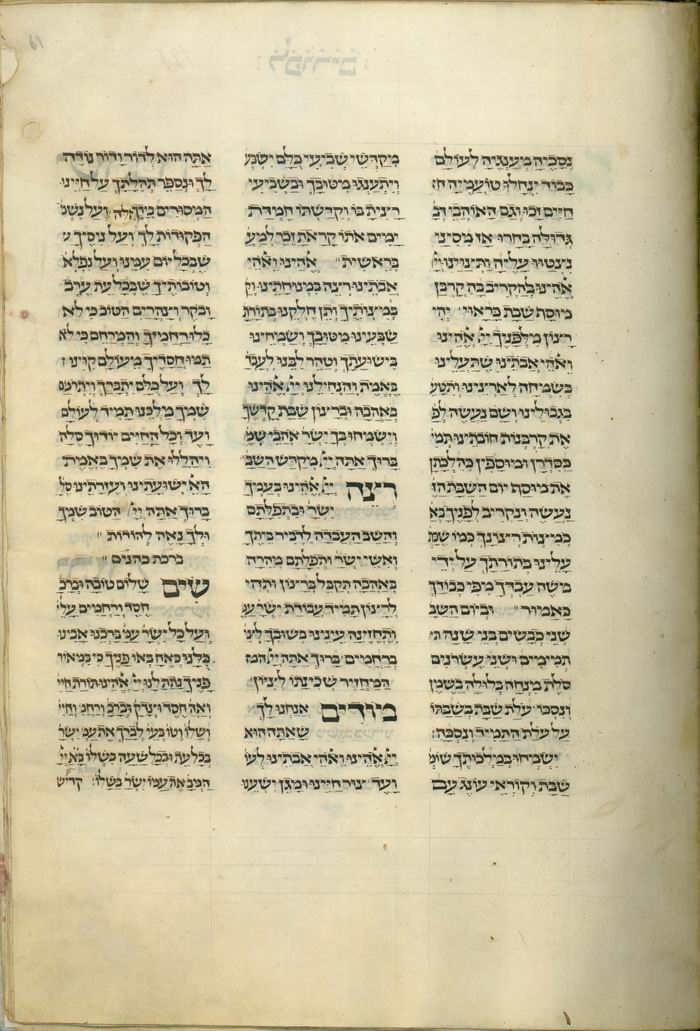 נסכיה מענגיה לעולם
כבוד ינחלו טועמיה חיי
חיים זכו וגם האוהבי דב
גדולה בחרו אז מסיני
נצטוו עליה ותצוינו ייי
אלהינו להקריב בה קרבן
מוסף שבת כראוי יהי
רצון מלפניך ייי אלהינו
ואלהי אבתינו שתעלינו
בשמחה לארצינו ותטע
בגבולינו ושם נעשה לפ
את קרבנות חובתינו תמי
כסדרן ומוספין כהלכתן
את מוסף יום השבת הז
נעשה ונקריב לפניך בא
כמצות רצונך כמו שכת
עלינו בתורתך על ידי
משה עבדך מפי כבודך
כאמור וביום השב
שני כבשים בני שנה ת
תמימים ושני עשרנים
סלת מנחה בלולה בשמן
ונסכו עלת שבת בשבתו
על עלת התמיד ונסכה
ישמחו במלכותך שומ
שבת וקוראי עונג עם
מקדשי שביעי כלם ישבע
ויתענגו מטובך ובשביעי
רצית בו וקדשתו חמדת
ימים אתו קראת זכר למע
בראשית אלהינו ואלהי
אבתינו רצה במנוחתינו וק
במצותיך ותן חלקנו בתורת
שבעינו מטובך ושמחינו
בישועתך וטהר לבנו לעבד
באמת והנחילנו ייי אלהינו
באהבה וברצון שבת קדשך
וישמחו בך ישר אהבי שמ
ברוך אתה ייי מקדש השב
רצה ייי אלהינו בעמך
ישר ובתפלתם
והשב העבדה לדביר ביתך
ואשי ישר ותפלתם מהרה
באהבה תקבל ברצון ותהי
לרצון תמיד עבודת ישר עמ
ותחזינה עינינו בשובך לציו
ברחמים ברוך אתה ייי המ
המחזיר שכינתו לציון
מודים אנחנו לך
שאתה הוא
ייי אלהינו ואלהי אבתינו לעו
ועד צור חיינו ומגן ישענו
אתה הוא לדור ודור נודה
לך ונספר תהלתך על חיינו
המסורים בידך ועל נשמ
הפקודות לך ועל ניסיך ש
שבכל יום עמינו ועל נפלא
וטובותיך שבכל עת ערב
ובקר וצהרים הטוב כי לא
כלו רחמיך והמרחם כי לא
תמו חסדיך מעולם קוינו
לך ועל כלם יתברך ויתרומם
שמך מלכנו תמיד לעולם
ועד וכל החיים יודוך סלה
ויהללו את שמך באמת
האל ישועתינו ועזרתינו סל
ברוך אתה ייי הטוב שמך
ולך נאה להודות
ברכת כהנים
שים שלום טובה וברכ
חסד ורחמים עלי
ועל כל ישר עמך ברכנו אבינו
כלנו כאחד באור פניך כי במאור
פניך נתת לנו ייי אלהינו תורת חיי
ואהבת חסד וצדק וברכ ורחמ וחיי
ושלו וטוב בעי לברך את עמ ישר
בכל עת ובכל שעה בשלו באיי
המב את עמו ישר בשלו קדיש